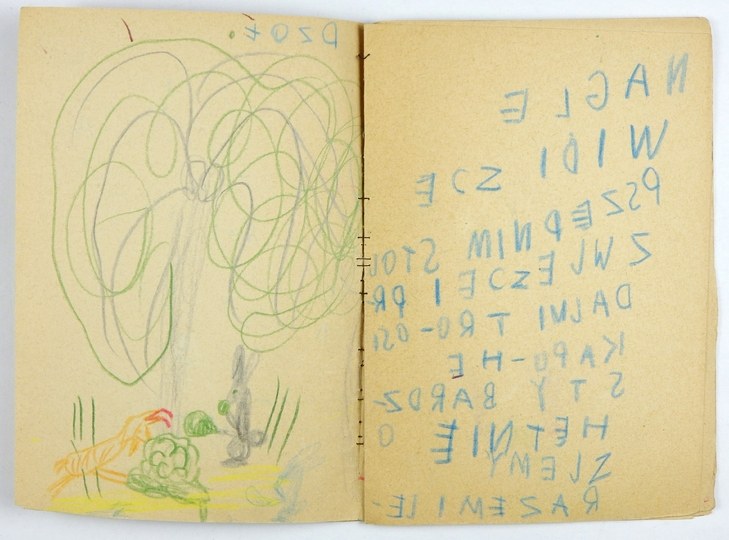 DZOŁ
NAGLE
WIDI
ZCE
PSZEDNIM STOI
ZWJEZCE I PR
DAJMI TRO-OSI
KAPU-HE
STY BARDZ-
HETNIE O
ZJEMY
RAZEM I LE-